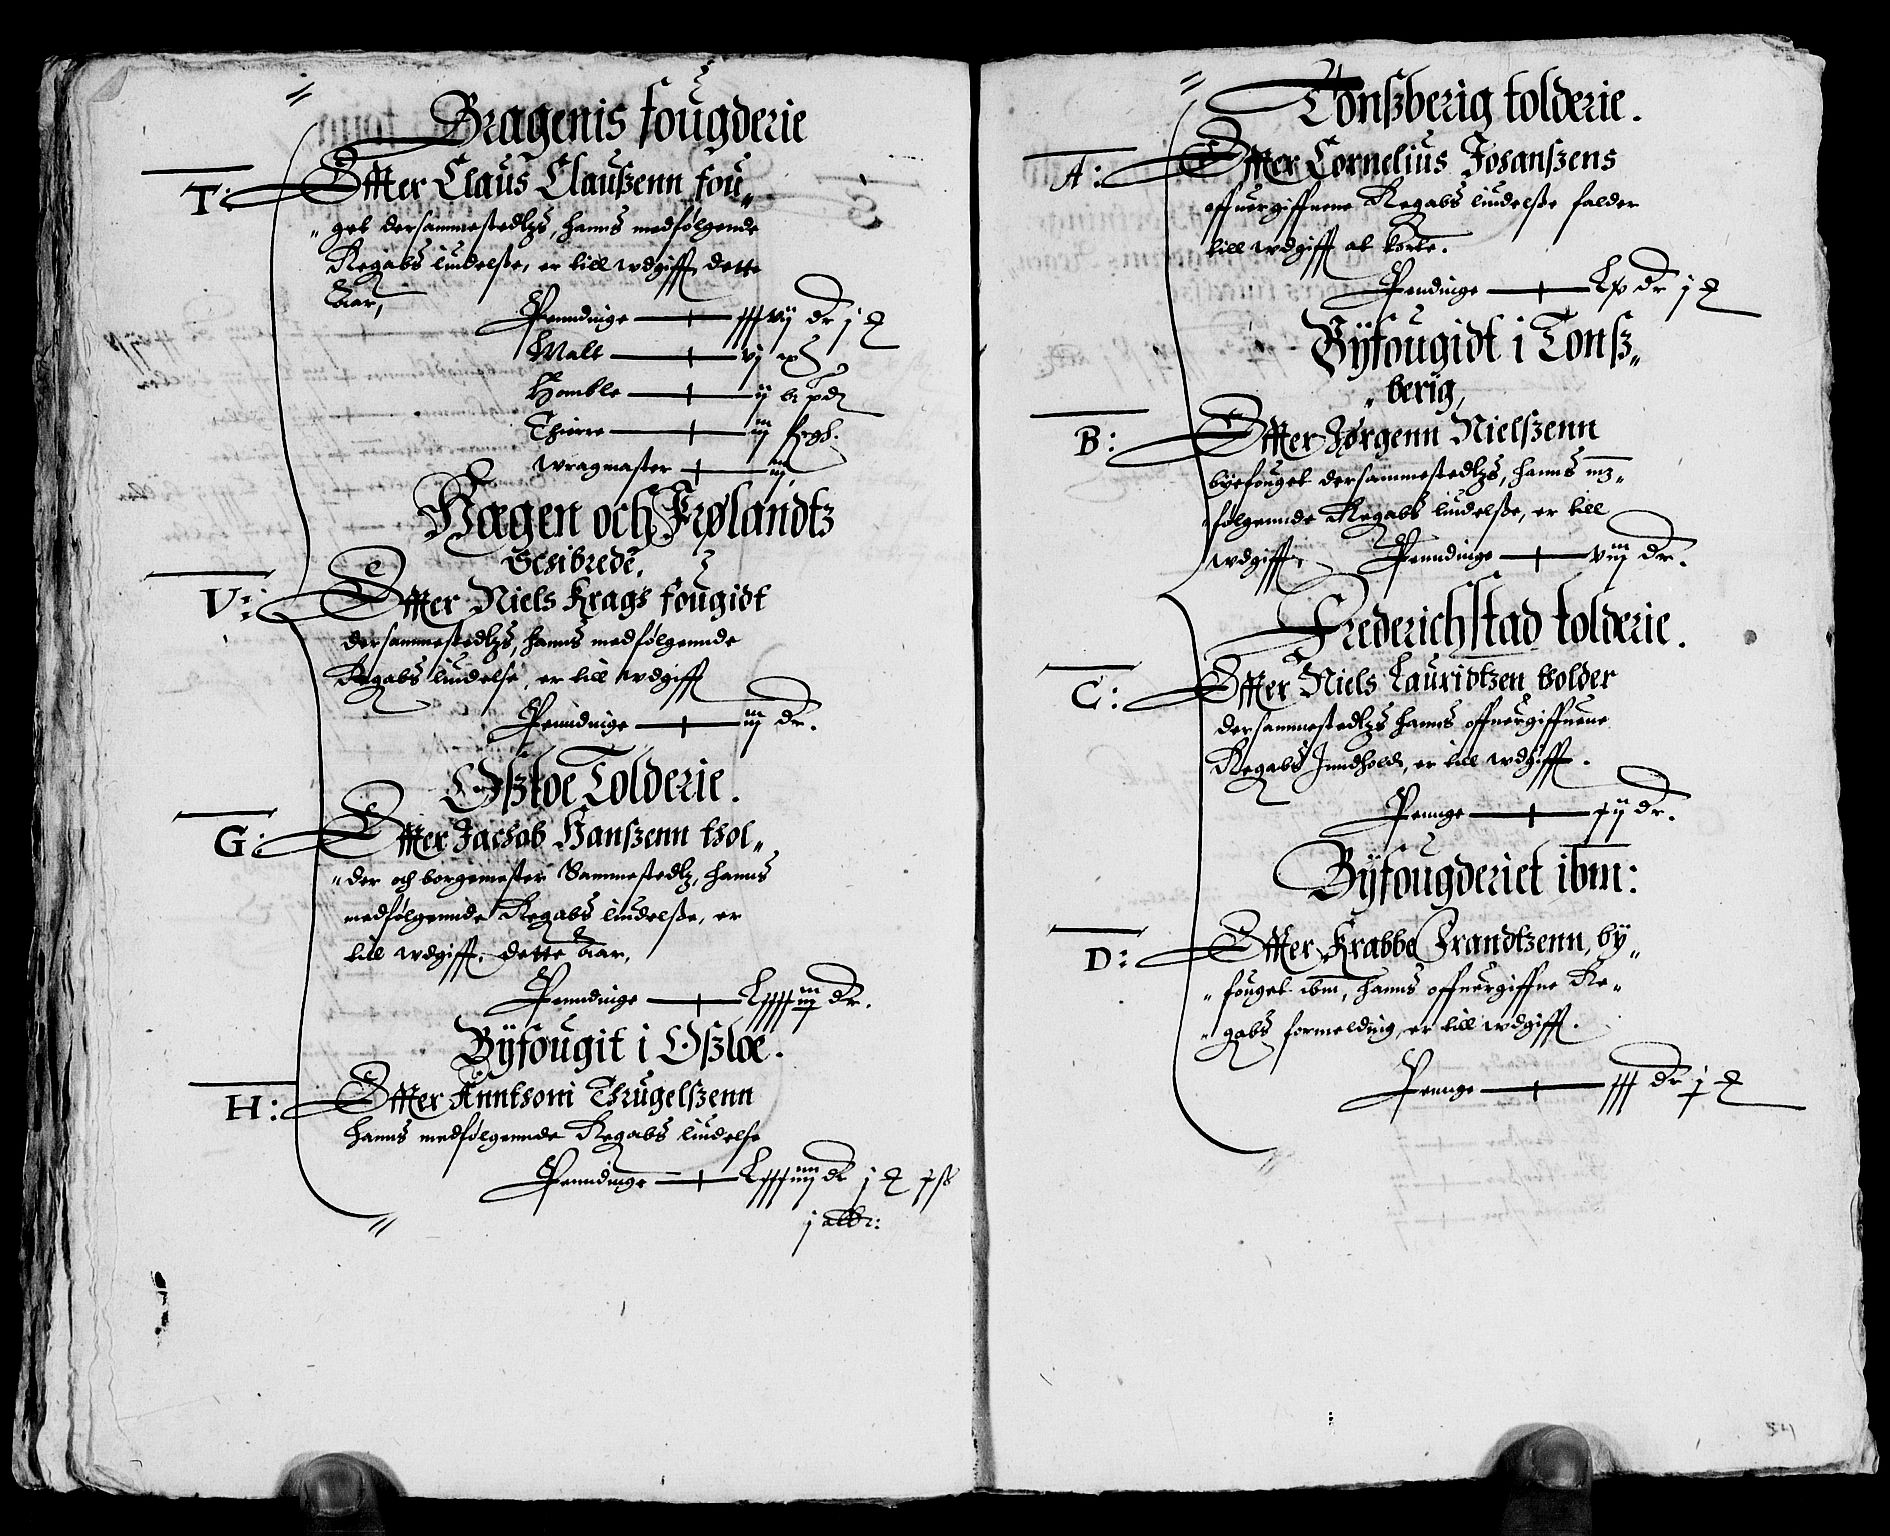 Bragenis fougderie
T: Effter Claus Claussenn fou„
„get dersammestedtzs, hanns medfølgende
Regabs liudelsse, er till wdgifft dette
Aar,
Penndinge — xxxvij dr j
Malt — vj
Homble — ij
Thiere — iiij
wragmaster — iiij
Hægen och Frølandtz
Schibrede.
V: Effter Niels Krags fougidt
dersammestedtzs, hanns medfølgennde
Regabs liudelse, er till wdgifft
Penndinge — iiij dr.
Oszloe Tolderie.
G: Effter Jachob Hanssenn thol„
„der och borgemester Sammestedtz, hanns
medfølgennde Regabs liudelsse, er
till wdgifft, dette Aar,
Penndinge — Lxxxxiiij dr.
Byfougit i Oszloe.
H: Effter Annthoni Thrugelssenn
hanns medfølgennde Regabs liudelse
Penndinge — Lxxxiiij dr j
j alb:
Tonsberig tolderie.
A: Effter Cornelius Johanssens
offuergiffuene Regabs liudelsse falder
till wdgifft at korte.
Pendinge — Lx dr j
Byfougidt i Tonss„
„berig,
B: Effter Jørgenn Nielssenn
byefouget dersammestedtzs, hanns m3„
„følgennde Regabs liudelsse, er till
wdgifft, Penndinge — viij dr.
Frederichstad tolderie.
C: Effter Niels Lauridtzen tholder
dersammestedtzs hanns offuergiffuene
Regabs Inndhold, er till wdgifft.
Pennge — xij dr.
Byfougderiet ibm:
D: Effter Krabbe Frandtzenn, by„
„fouget ibm, hanns offuergiffne Re„
„gabs formelding, er till wdgifft.
Pennge — xxx dr j
54